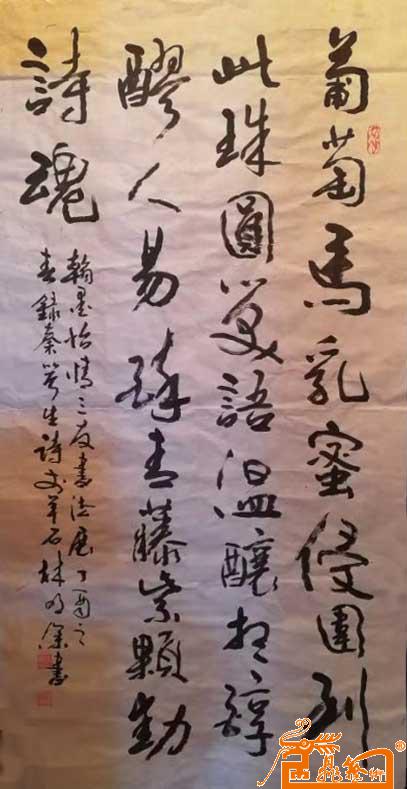 葡萄馬乳蜜侵園別
此珠圓笑語溫釀得醇
醪人易醉青藤紫顆勸
詩魂
翰墨怡情三友書法展丁酉之
春錄秦笃生詩文羊石林明深書